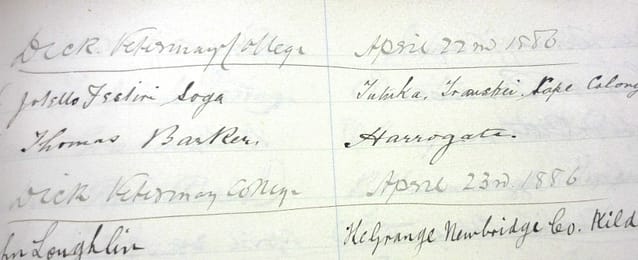 Dick Veterinary College April 22nd 1886
Jotello Festiri Soga Tutuka, Transkei, Cape Colony
Thomas Barker. Harrogate.
Dick Veterinary College April 23rd 1886
hn Loughlin McGrange Newbridge Co. Kild